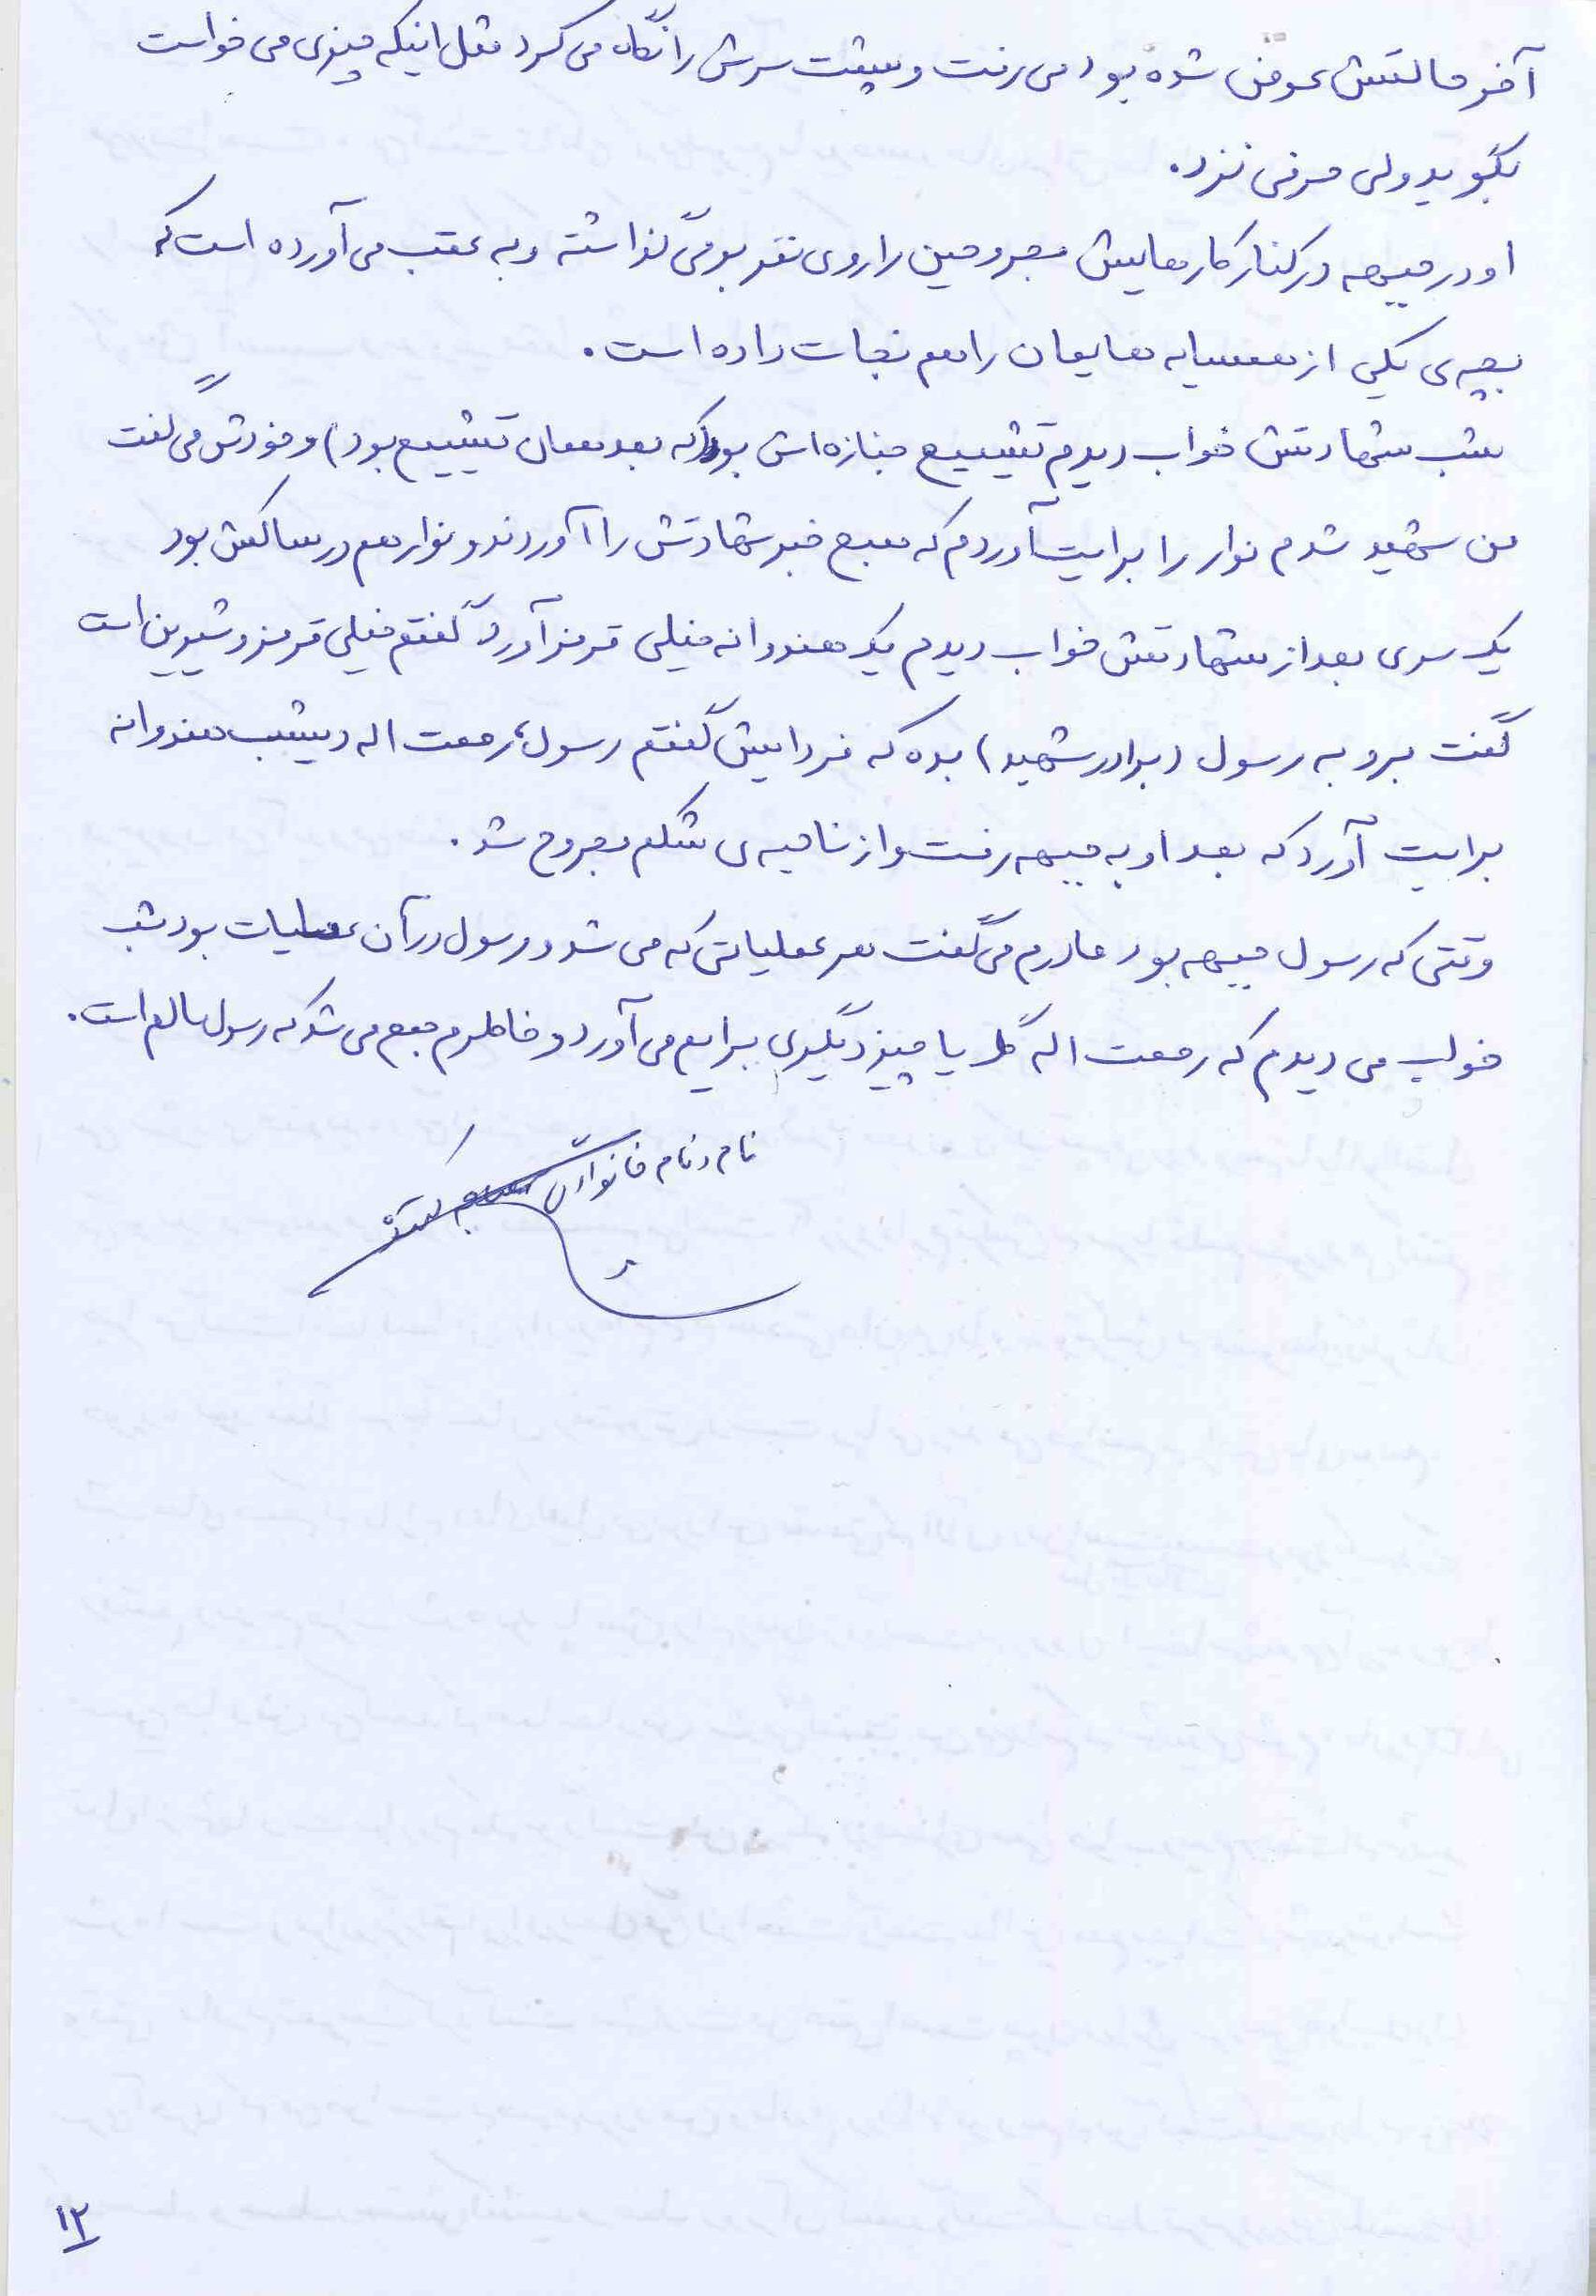 آخر حالتش عوض شده بود می رفت و پشت سرش را نگاه می کرد مثل اینکه چیزی می خواست
بگوید ولی حرفی نزد.
او در جبهه در کنار کارهایش مجروحین را روی نفر بر می گذاشته و به عقب می آورده است که
بچه ی یکی از همسایه هایمان را هم نجات داده است.
شب شهادتش خواب دیدم تشییع جنازه اش بود (که بعد همان تشییع بود) و خودش می گفت
من شهید شدم نوار را برایت آوردم که صبح خبر شهادتش را آوردند و نوار هم در ساکش بود
یک سری بعد از شهادتش خواب دیدم یک هندوانه خیلی قرمز آورد گفتم خیلی قرمز و شیرین است
گفت برو به رسول (برادر شهید) بده که فردایش گفتم رسول، رحمت اله دیشب هندوانه
برایت آورد که بعد او به جبهه رفت و از ناحیه ی شکم مجروح شد.
وقتی که رسول جبهه بود مادرم می گفت هر عملیاتی که می شد و رسول در آن عملیات بود شب
خواب می دیدم که رحمت اله گل یا چیز دیگری برایم می آورد و خاطرم جمع می شد که رسول سالم است.
نام و نام خانوادگی
۱۲